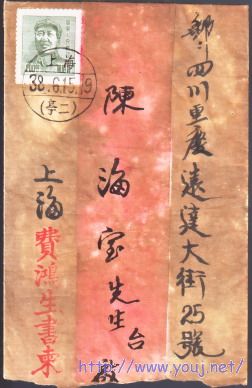 郵：四川重慶
遠達大街25號
陳海宝先生台啟
上海費鴻生書柬
上海
38.6.15.19
(亭二)
http://www.youj.net/